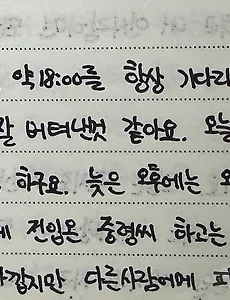 약 18:00를 항상 기다리
잘 버텨낸것 같아요. 오늘
하구요. 늦은 오후에는 오
에 전입온 중령씨 하고는
가깝지만 다른사람에메 피